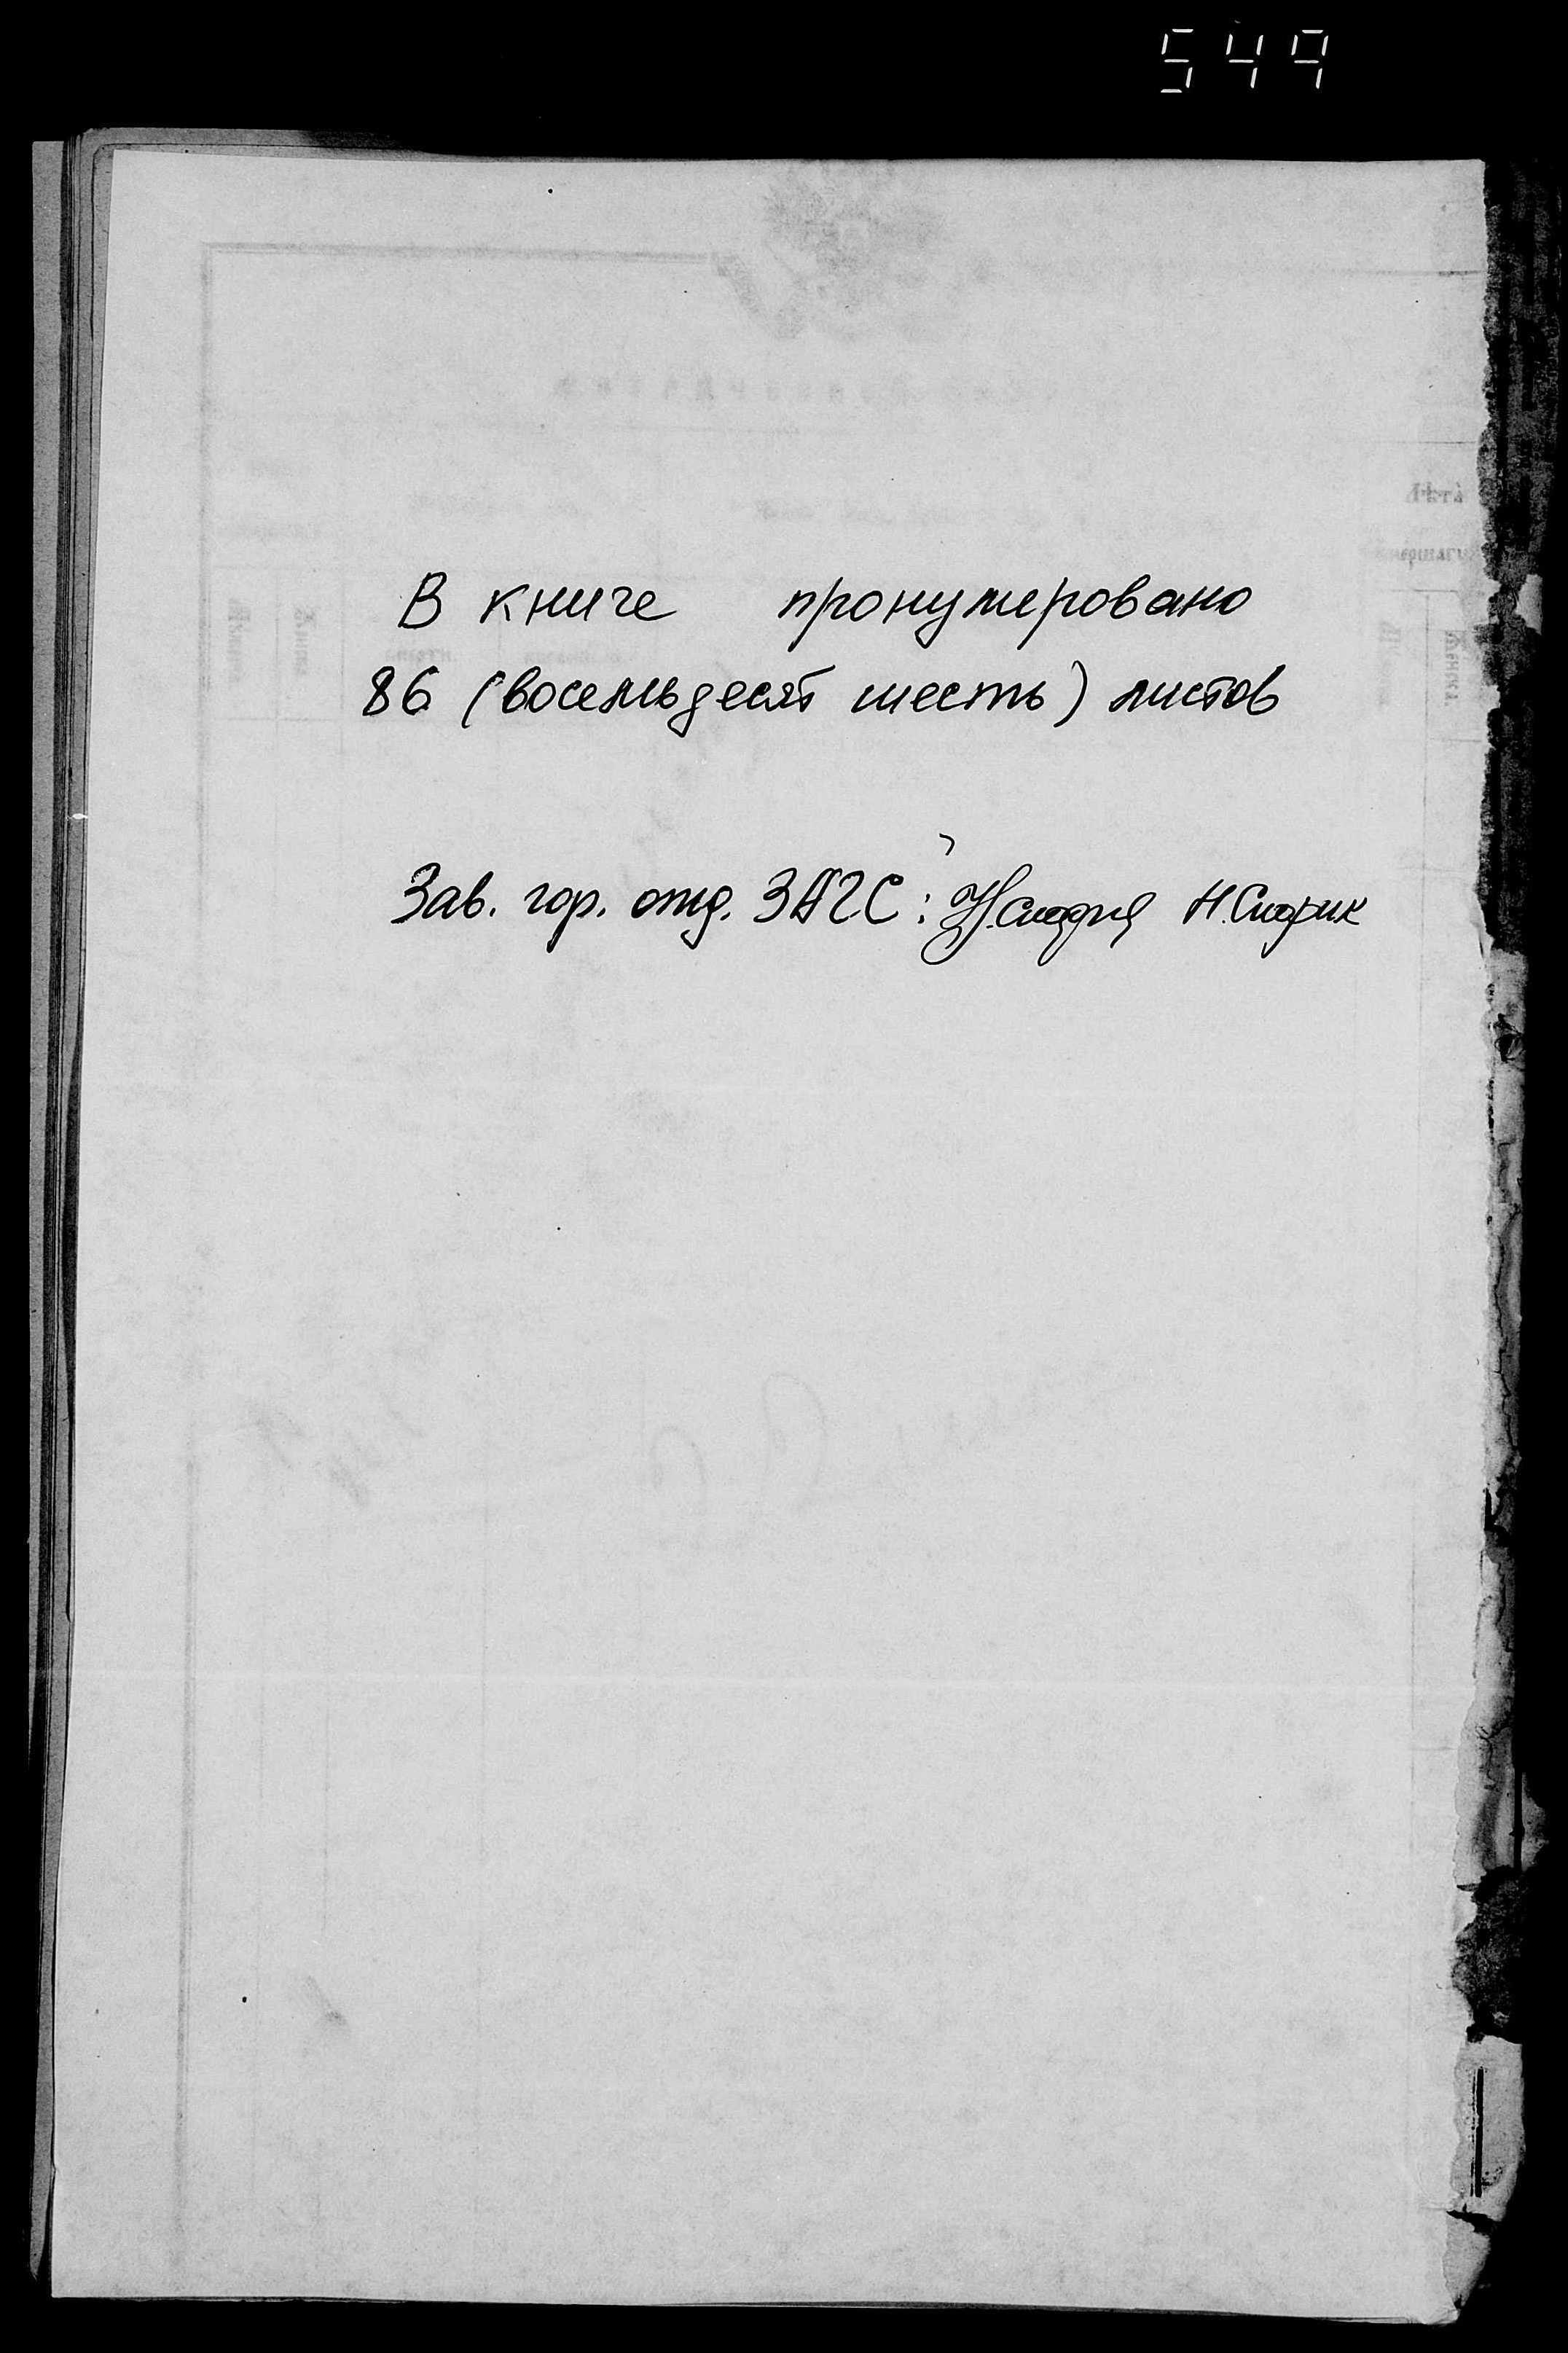 549
В книге пронумеровано
86 (восемьдесят шесть) листов
Зав. гор. отд. ЗАГС: Н.